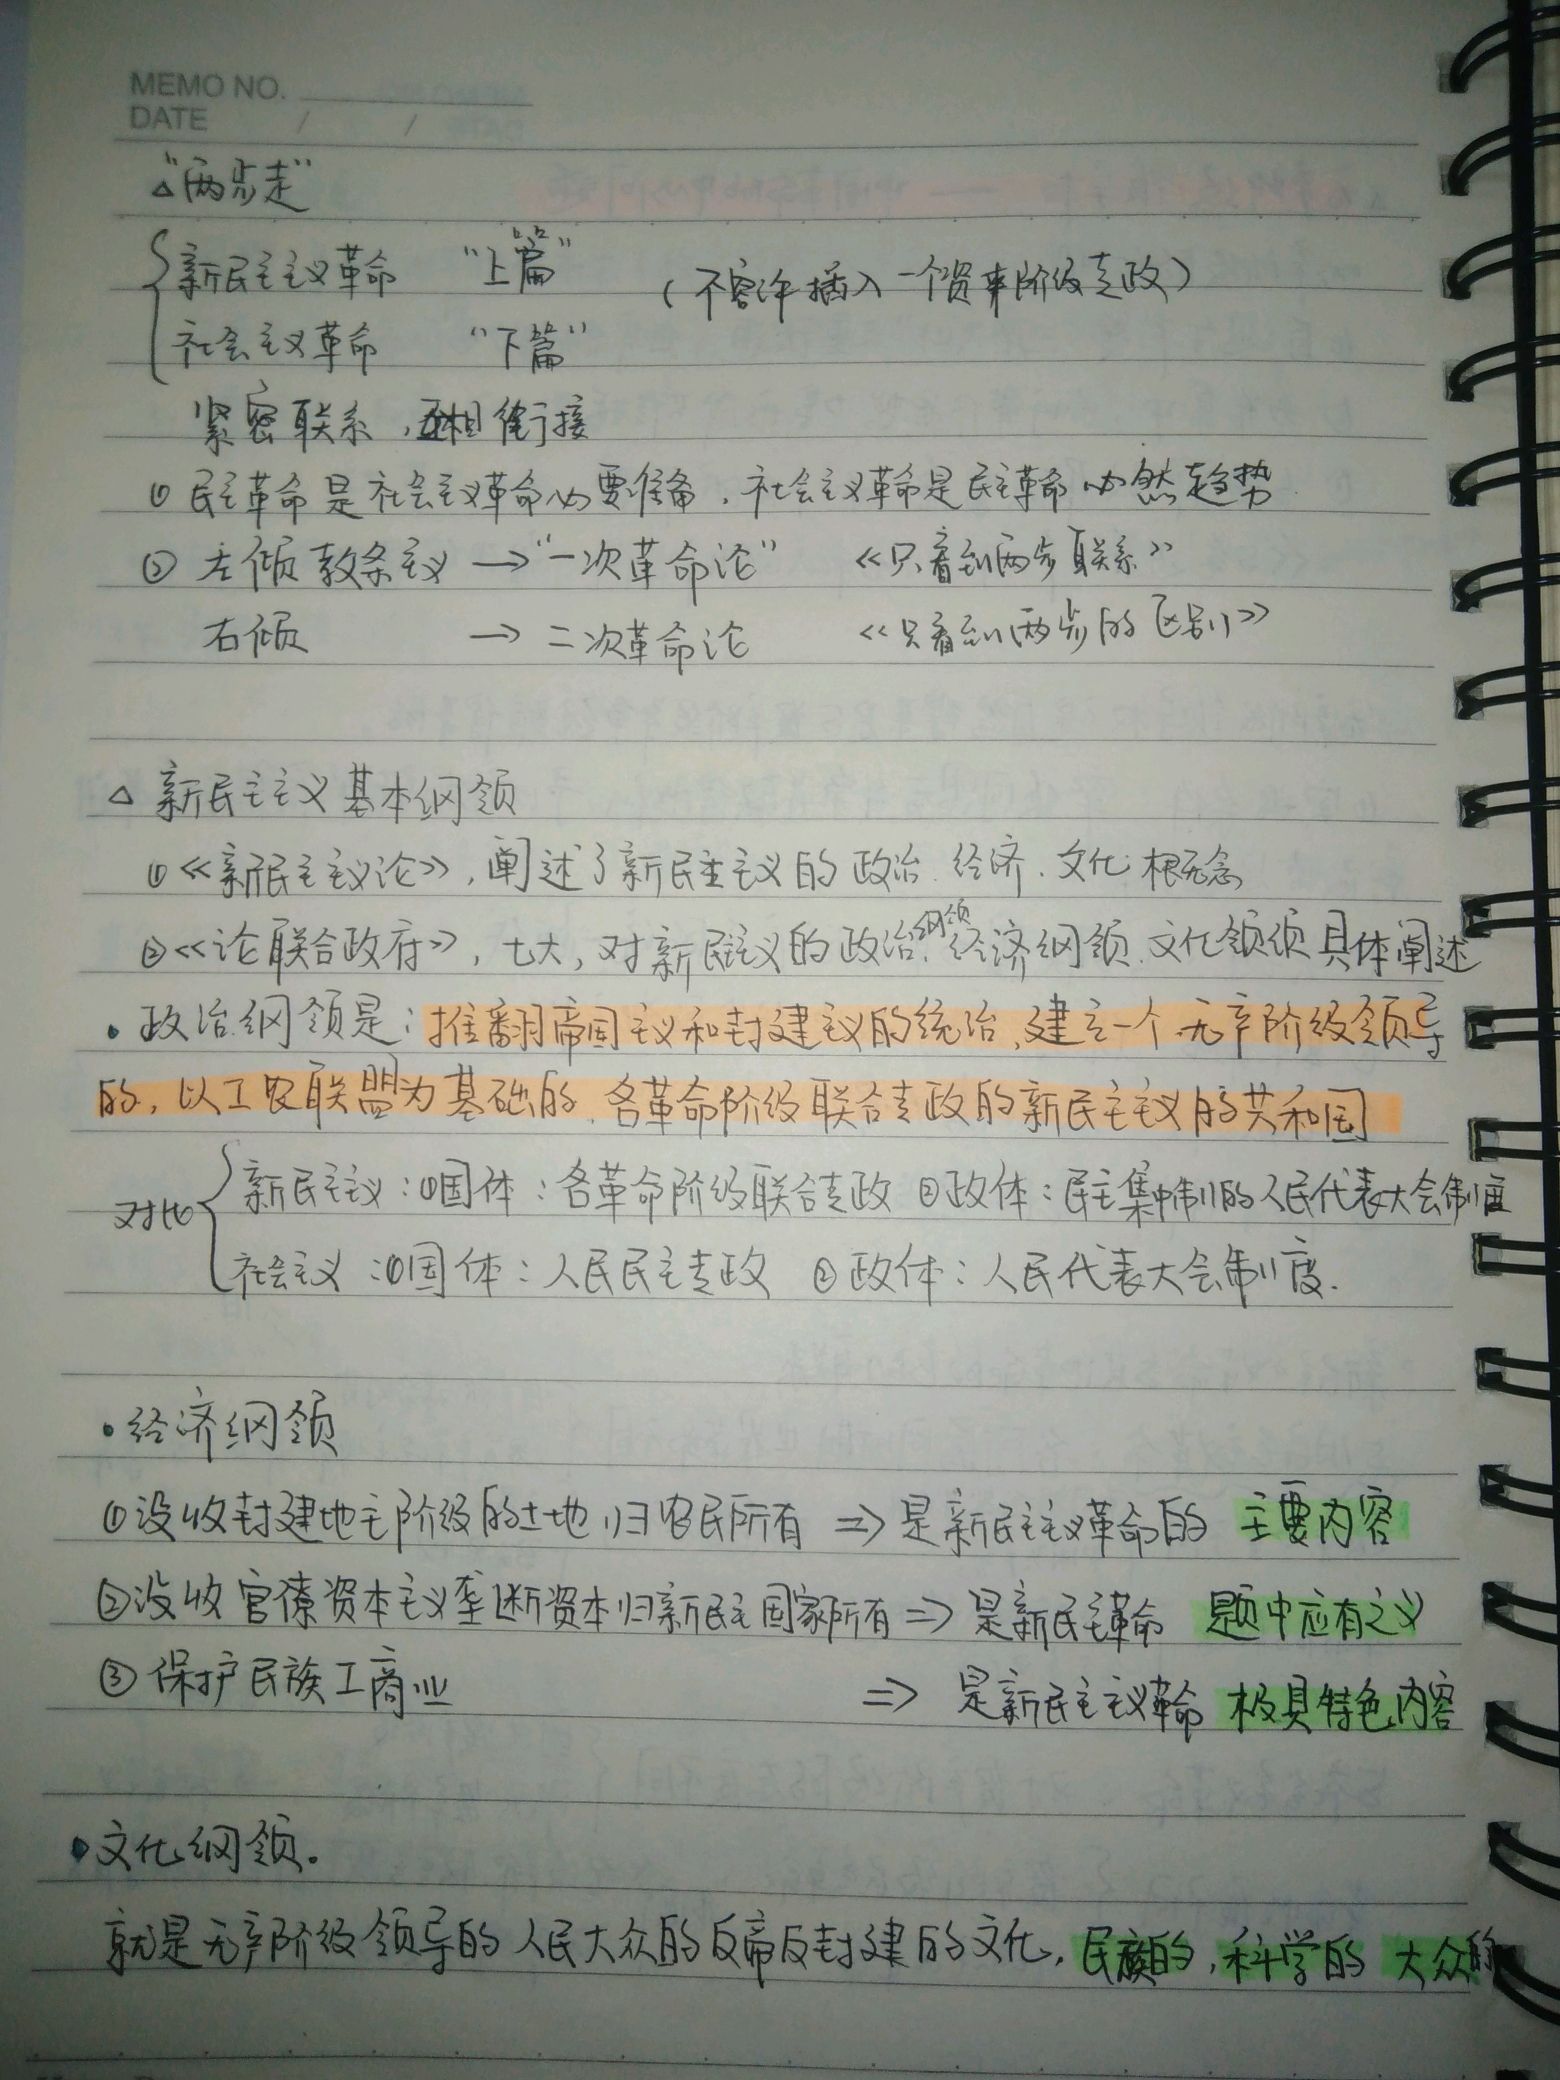 MEMO NO.
DATE / /
△“两步走”
新民主主义革命 “上篇” (不容许插入一个资本阶级专政)
社会主义革命 “下篇”
紧密联系,互相衔接
① 民主革命是社会主义革命必要准备,社会主义革命是民主革命必然趋势
② 左倾教条主义 → “一次革命论” 《只看到两步联系》
右倾 → 二次革命论 《只看到两步的区别》
△ 新民主主义基本纲领
①《新民主主义论》,阐述了新民主主义的政治、经济、文化概念
②《论联合政府》,七大,对新民主义的政治纲领、经济纲领、文化领须具体阐述
• 政治纲领是:推翻帝国主义和封建主义的统治,建立一个无产阶级领导
的,以工农联盟为基础的、各革命阶级联合专政的新民主主义的共和国
对比 新民主义:①国体:各革命阶级联合专政 ②政体:民主集中制的人民代表大会制度
社会主义:①国体:人民民主专政 ②政体:人民代表大会制度.
• 经济纲领
①没收封建地主阶级的土地归农民所有 ⇒ 是新民主主义革命的 主要内容
②没收官僚资本主义垄断资本归新民主国家所有 ⇒ 是新民主革命 题中应有之义
③保护民族工商业 ⇒ 是新民主主义革命 极具特色内容
• 文化纲领。
就是无产阶级领导的人民大众的反帝反封建的文化,民族的,科学的 大众的